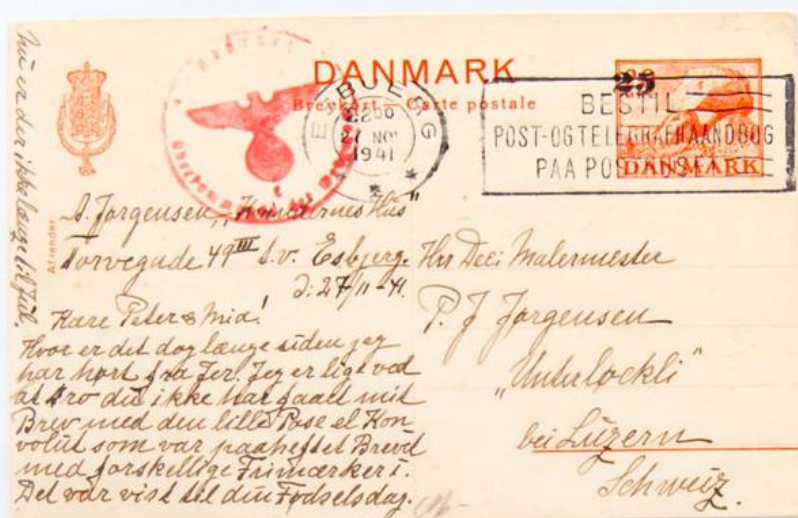 DANMARK
Brevkort — Carte postale
25
DANMARK
ESBJERG
22
27 NOV
1941
BESTIL
POST-OG TELEGRAFHAANDBOG
PAA POSTHUSET
Afsender
A. Jørgensen, „Kvindernes Hus"
Torvegade 49 III t.v. Esbjerg.
D: 27/11-41.
Kære Peter & Mia!
Hvor er det dog længe siden jeg
har hørt fra Jer. Jeg er lige ved
at tro du ikke har faaet mit
Brev med den lille Pose el Kon
volut som var paaheftet Brevet
med forskellige Frimærker i.
Det var vist til din Fødselsdag.
nu er der ikke længe til Jul.
Hr Malermester
P. J. Jørgensen
„Unterlöckli"
bei Luzern
Schweiz.